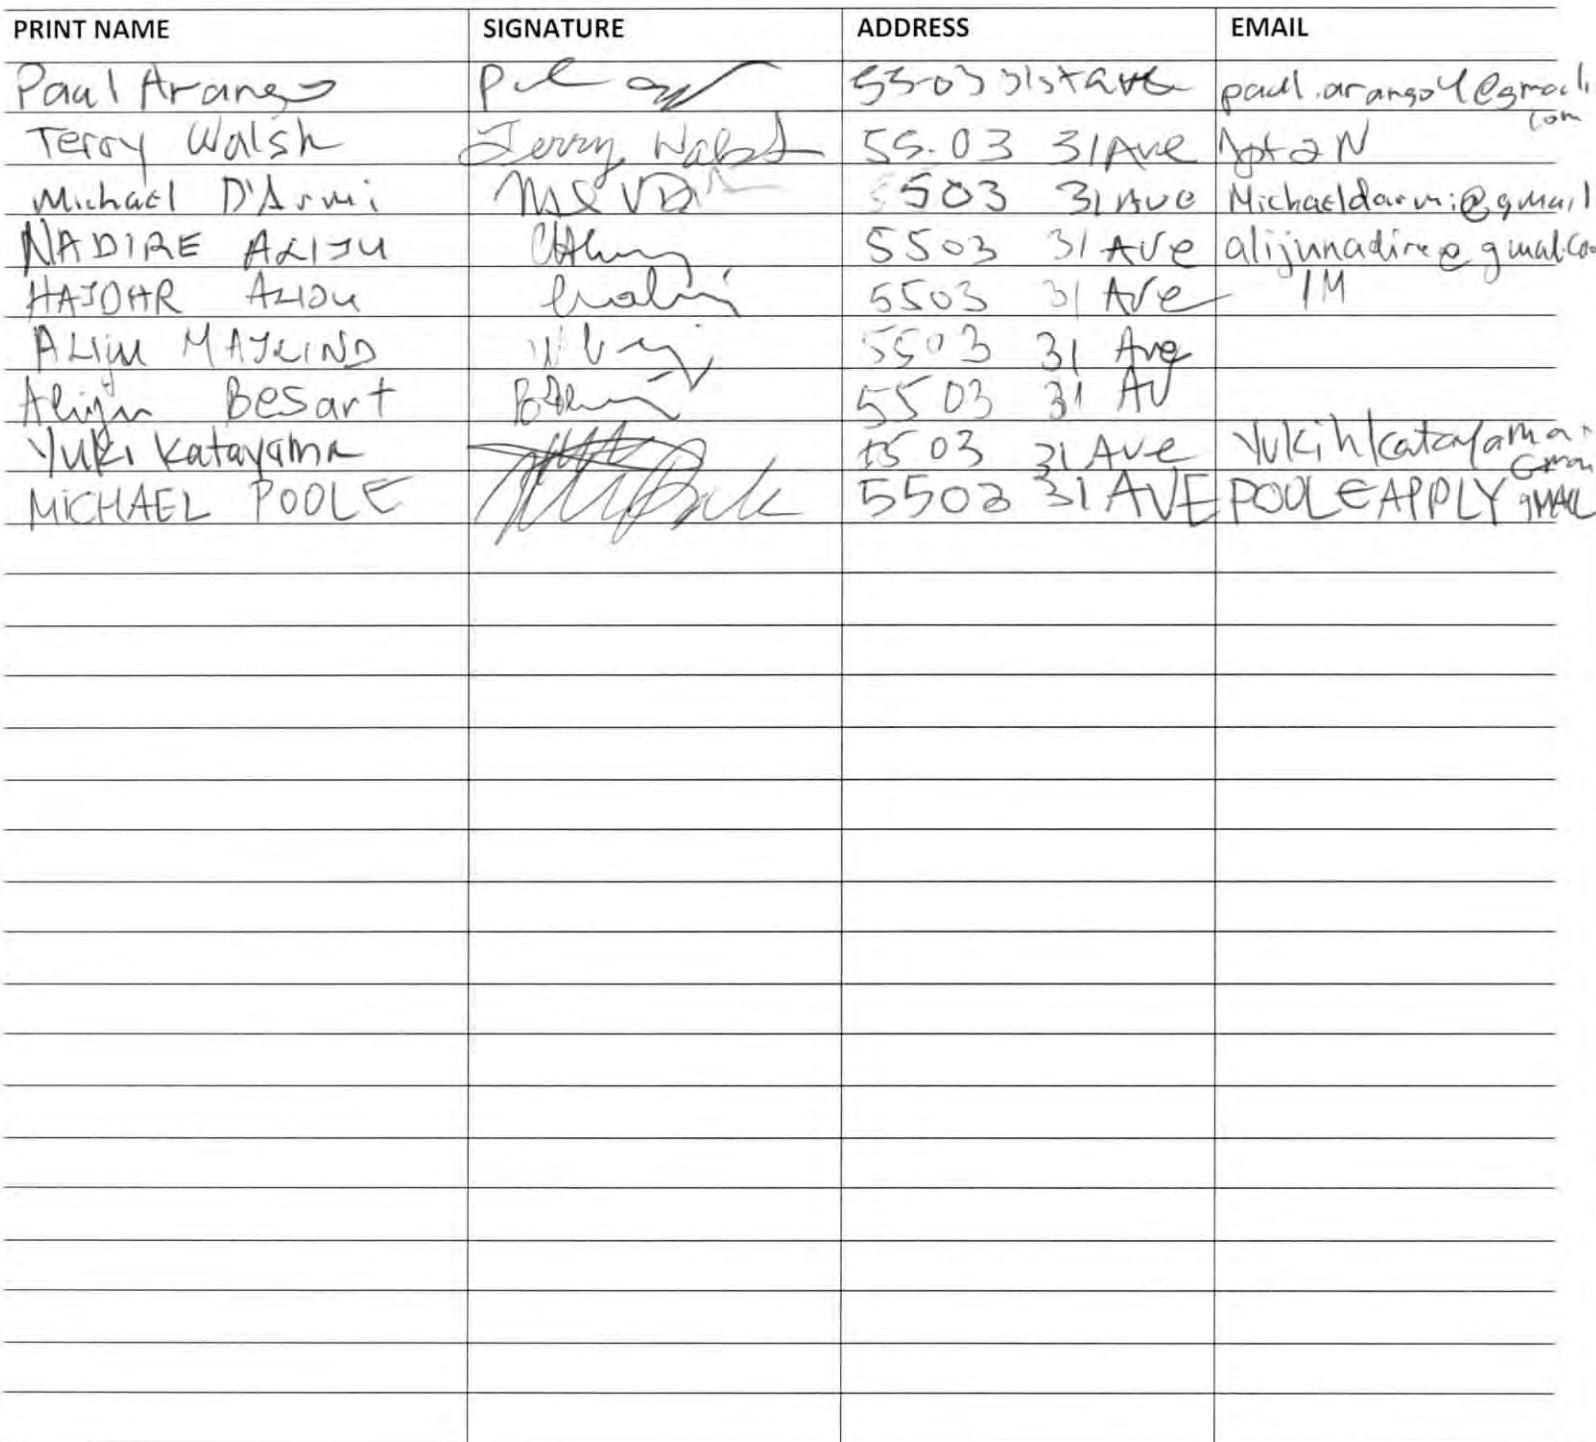 PRINT NAME SIGNATURE ADDRESS EMAIL
Paul Arango 55-03 31st ave paul.arango4@gmail.com
Terry Walsh Terry Walsh 55-03 31 Ave Apt 2N
Michael D'Armi 5503 31 AVE Michaeldarmi@gmail
NADIRE ALIJU 5503 31 AVE alijunadire@gmal.com
5503 31 AVe 1M
ALIJU MAJLIND 5503 31 Ave
Alija Besart 5503 31 AV
Yuki Katayama 5503 31 Ave
MICHAEL POOLE 5503 31 AVE POOLEAPPLY gMAIL